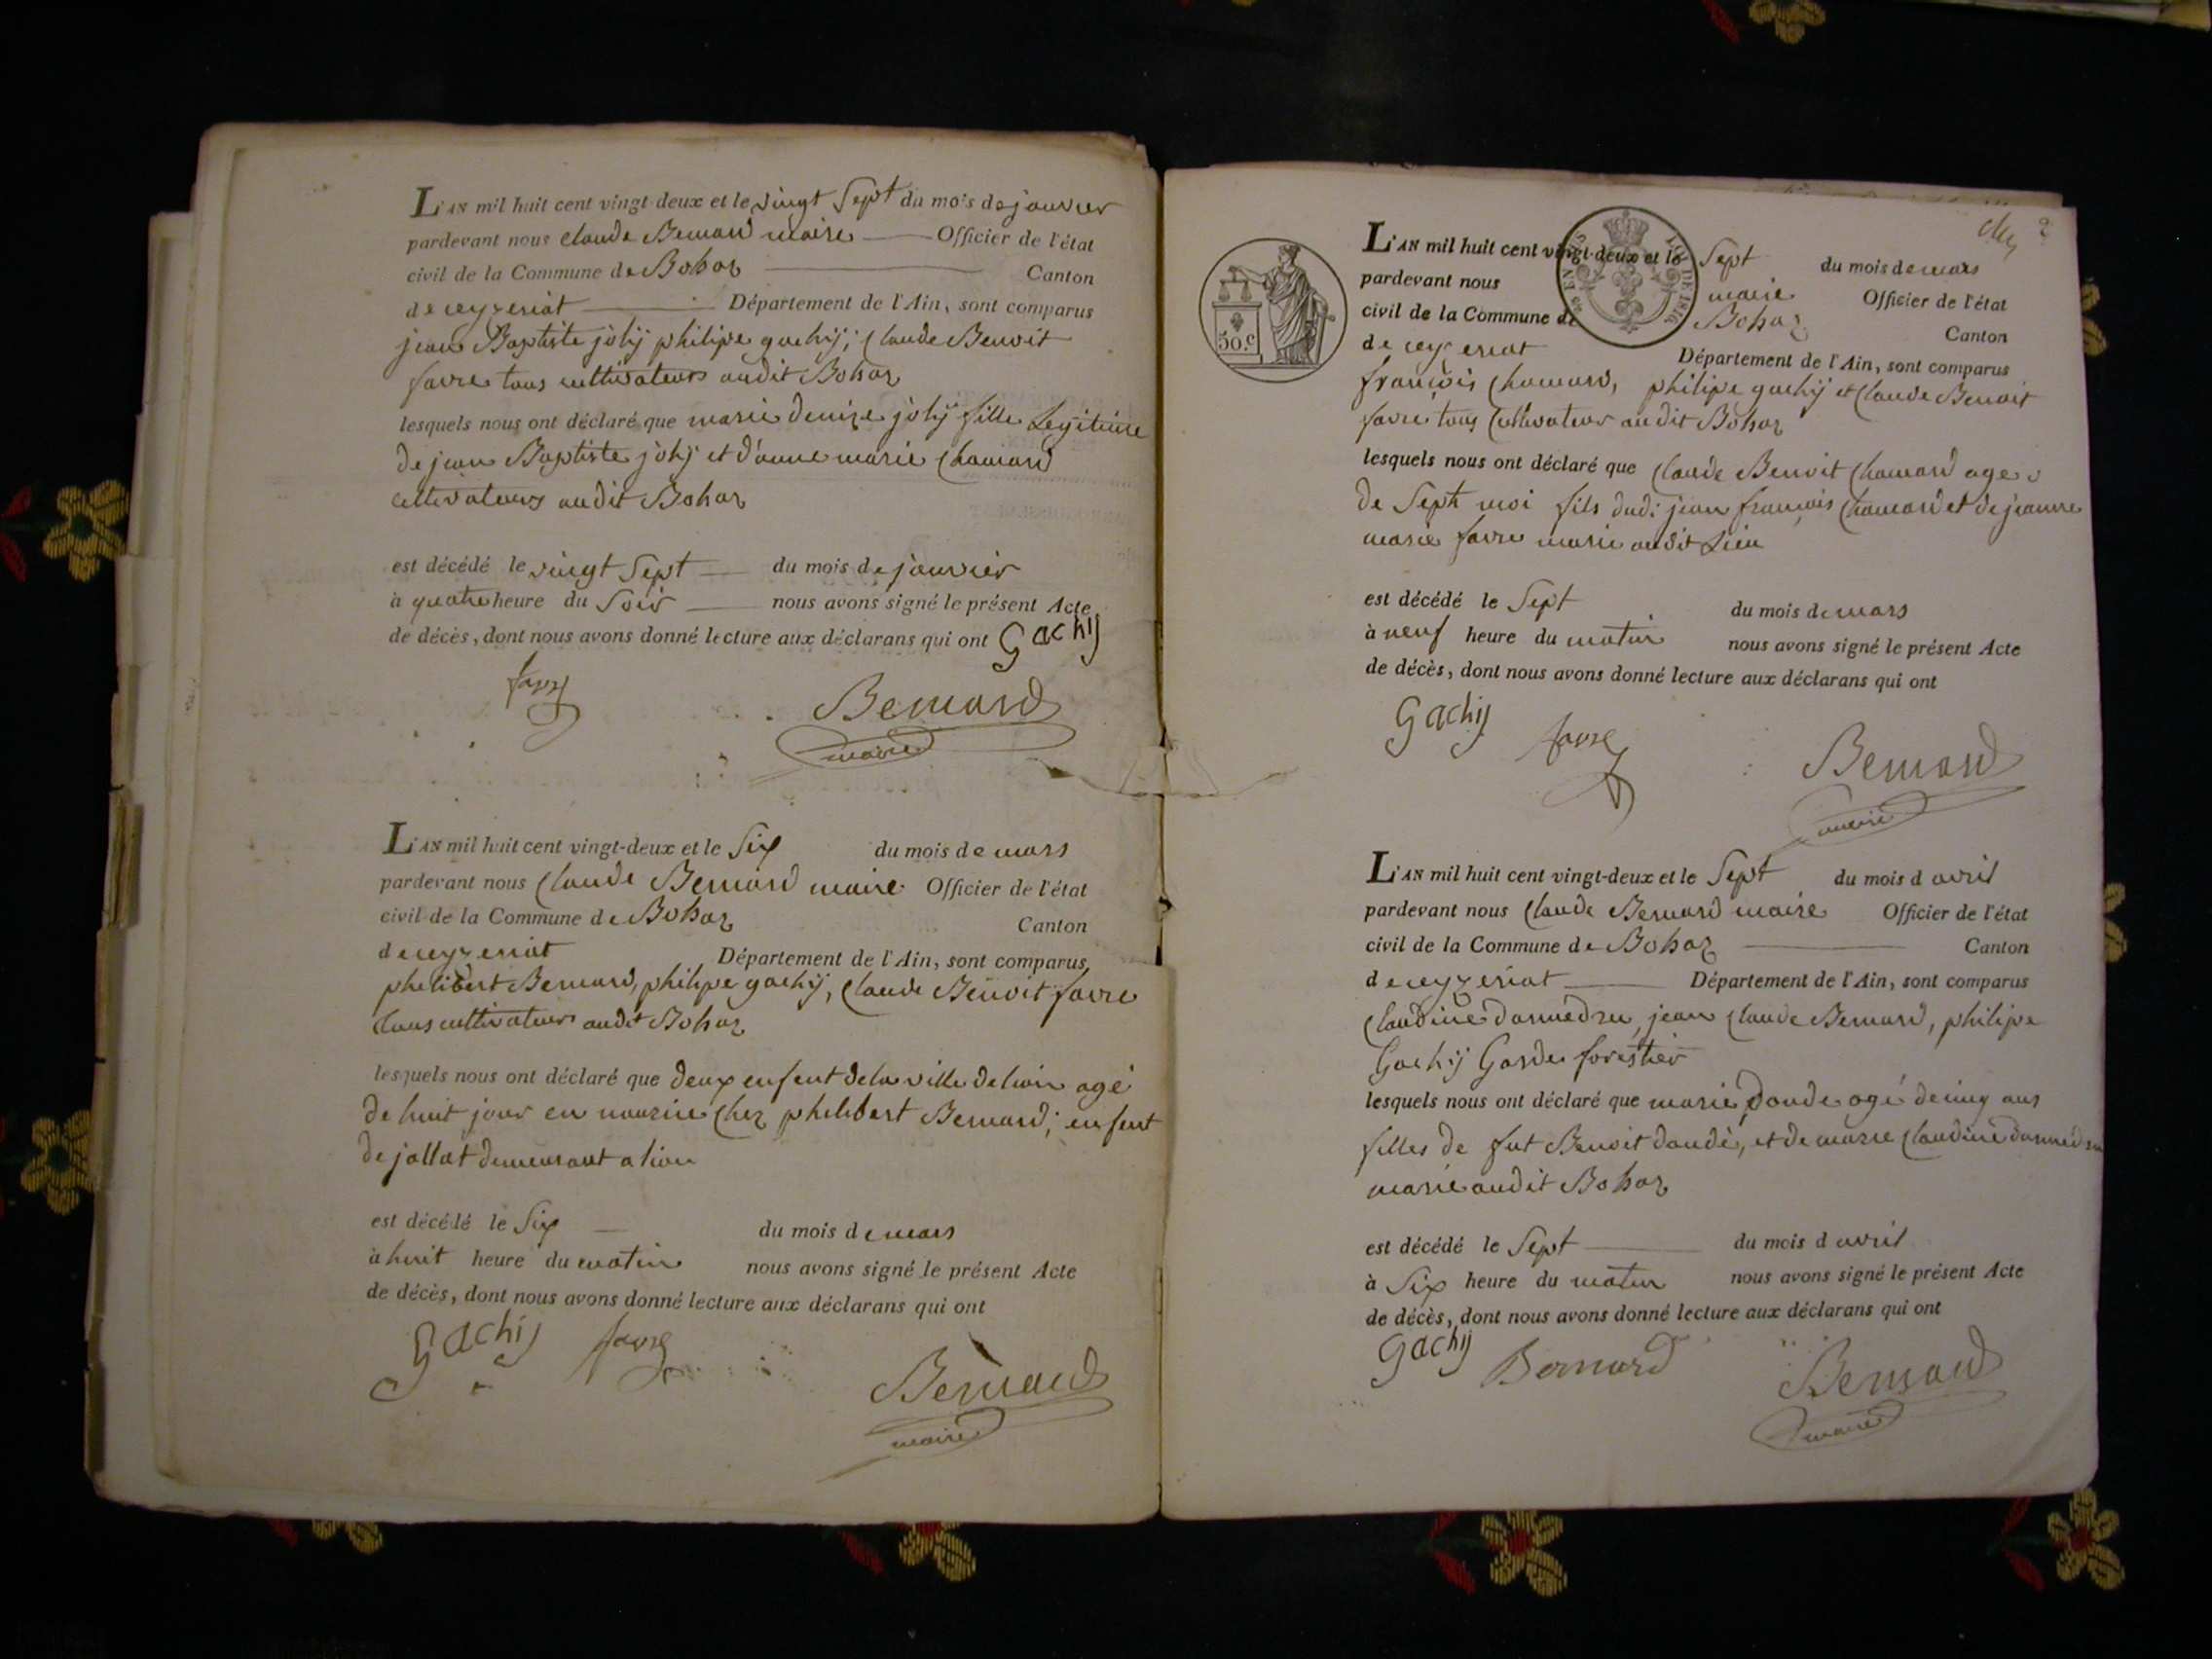 L'AN mil huit cent vingt-deux et le vingt Sept du mois de janvier
pardevant nous claude Bernard maire Officier de l'état
civil de la Commune de Bohaz Canton
de ceyzeriat Département de l'Ain, sont comparus
jean Baptiste jolij philipe gachij, Claude Benoit
favre tous cultivateurs audit Bohaz
lesquels nous ont déclaré que marie denize jolij fille Legitime
de jean Baptiste jolij et d'anne marie Chanard
cultivateurs audit Bohaz
est décédé le vingt Sept du mois de janvier
à quatre heure du Soir nous avons signé le présent Acte
de décès, dont nous avons donné lecture aux déclarans qui ont Gachij
favre Bernard
maire
L'AN mil huit cent vingt-deux et le Six du mois de mars
pardevant nous Claude Bernard maire Officier de l'état
civil de la Commune de Bohaz Canton
de ceyzeriat Département de l'Ain, sont comparus
philibert Bernard, philipe gachij, Claude Benoit favre
tous cultivateurs audit Bohaz
lesquels nous ont déclaré que deux enfent de la ville de lion agé
de huit jour en nourice Chez philibert Bernard; enfent
de jallat demeurant a lion
est décédé le Six du mois de mars
à huit heure du matin nous avons signé le présent Acte
de décès, dont nous avons donné lecture aux déclarans qui ont
Gachij favre
Bernard
maire
2
L'AN mil huit cent vingt-deux et le Sept du mois de mars
pardevant nous maire Officier de l'état
civil de la Commune de Bohaz Canton
de ceyzeriat Département de l'Ain, sont comparus
50.c
LOI DE 1816
françois Chanard, philipe gachij et Claude Benoit
favre tous Cultivateur audit Bohaz
lesquels nous ont déclaré que Claude Benoit Chanard age
de Sept moi fils dudi jean françois Chanard et de jeanne
marie favre marié audit Lieu
est décédé le Sept du mois de mars
à neuf heure du matin nous avons signé le présent Acte
de décès, dont nous avons donné lecture aux déclarans qui ont
Gachij favre Bernard
maire
L'AN mil huit cent vingt-deux et le Sept du mois d avril
pardevant nous Claude Bernard maire Officier de l'état
civil de la Commune de Bohaz Canton
de ceyzeriat Département de l'Ain, sont comparus
Claudine danedru, jean Claude Bernard, philipe
Gachij Garde forestier
lesquels nous ont déclaré que marie doude agé de cinq ans
filles de fut Benoit doudé, et de marie Claudine
marié audit Bohaz
est décédé le Sept du mois d avril
à Six heure du matin nous avons signé le présent Acte
de décès, dont nous avons donné lecture aux déclarans qui ont
Gachij Bernard Bernard
maire